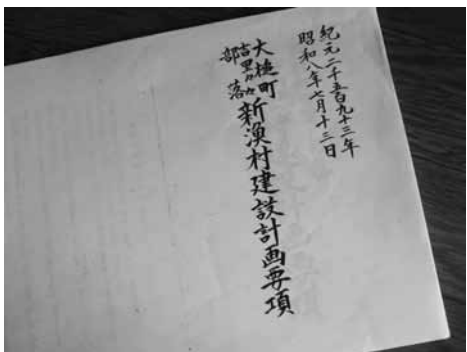 紀元二千五百九十三年
昭和八年七月十三日
大槌町
吉里々々
部落
新漁村建設計画要項